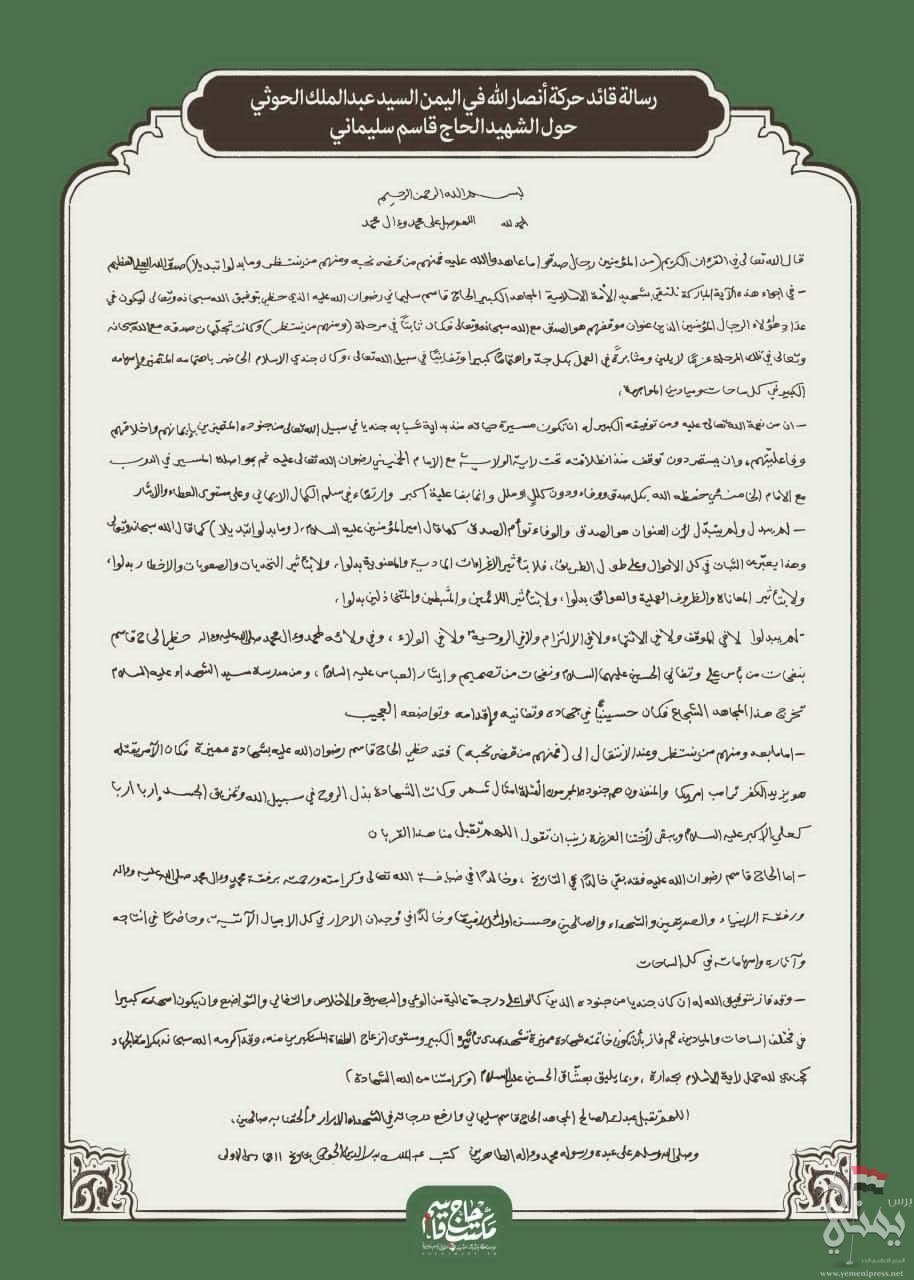 رسالة قائد حركة أنصار الله في اليمن السيد عبدالملك الحوثي
حول الشهيد الحاج قاسم سليماني
بسم الله الرحمن الرحيم
الحمد لله اللهم صل على محمد وءال محمد
قال الله تعالى في القرءان الكريم (من المؤمنين رجال صدقوا ما عاهدوا الله عليه فمنهم من قضى نحبه ومنهم من ينتظر وما بدلوا تبديلا) صدق الله العلي العظيم
- في اجواء هذه الآية المباركة نلتقي بشهيد الأمة الاسلامية المجاهد الكبير الحاج قاسم سليماني رضوان الله عليه الذي حظي بتوفيق الله سبحانه وتعالى ليكون في
عداد هؤلاء الرجال المؤمنين الذين عنوان موقفهم هو الصدق مع الله سبحانه وتعالى فكان ثابتاً في مرحلة (ومنهم من ينتظر) وكانت تجليات صدقه مع الله سبحانه
وتعالى في تلك المرحلة عزيمًا لا يلين ومثابرةً في العمل بكل جدّ واهتمامًا كبيرا وتفانيًا في سبيل الله تعالى، وكان جندي الاسلام الحاضر باهتمامه المتميز وإسهامه
الكبير في كل ساحات وميادين المواجهة.
- ان من نعمة الله تعالى عليه ومن توفيقه الكبير له ان تكون مسيرة حياته منذ بداية شبابه جنديا في سبيل الله تعالى من جنوده المتميزين بإيمانهم واخلاقهم
وفاعليتهم، وان يستمر دون توقف منذ انطلاقته تحت راية الولاية مع الامام الخميني رضوان الله تعالى عليه ثم بمواصلة المسير في الدرب
مع الامام الخامنئي حفظه الله بكل صدق ووفاء ودون كلل او ملل وانما بفاعلية اكبر وارتقاء في سلم الكمال الايماني وعلى مستوى العطاء والايثار
- لم يبدل ولم يتبدّل لأن العنوان هو الصدق والوفاء توأم الصدق كما قال امير المؤمنين عليه السلام، (وما بدلوا تبديلا) كما قال الله سبحانه وتعالى
وهذا يعبّر عن الثبات في كل الاحوال وعلى طول الطريق، فلا بتأثير الإغراءات المادية والمعنوية بدلوا، ولا بتأثير التحديات والصعوبات والاخطار بدلوا،
ولا بتأثير المعاناة والظروف الصعبة والعوائق بدلوا، ولا بتأثير اللائمين والمثبطين والمتخاذلين بدلوا،
- لم يبدلوا لا في الموقف ولا في الانتماء ولا في الالتزام ولا في الروحية ولا في الولاء، وفي ولائه لمحمد وءال محمد صلى الله عليه وءاله حظي الحاج قاسم
بنفحات من بأس علي وتفاني الحسين عليهما السلام ونفحات من تصميم وإيثار العباس عليه السلام، ومن مدرسة سيد الشهداء عليه السلام
تخرج هذا المجاهد الشجاع فكان حسينيًّا في جهاده وتفانيه وإقدامه وتواضعه العجيب
- اما ما بعد ومنهم من ينتظر وعند الانتقال الى (فمنهم من قضى نحبه) فقد حظي الحاج قاسم رضوان الله عليه بشهادة مميزة فكان الآمر بقتله
هو يزيد الكفر ترامب امريكا والمنفذون هم جنوده المجرمون القتلة امثال شمر وكانت الشهادة بذل الروح في سبيل الله وتمزيق الجسد إربا اربا
كعلي الاكبر عليه السلام وبقي لأختنا العزيزة زينب ان تقول اللهم تقبل منا هذا القربان
- اما الحاج قاسم رضوان الله عليه فقد بقي خالدًا في التاريخ، وخالدًا في ضيافة الله تعالى وكرامته ورحمته برفقة محمد وءال محمد صلى الله عليه وءاله
ورفقة الانبياء والصديقين والشهداء والصالحين وحسن اولئك رفيقا وخالدًا في وجدان الاحرار في كل الاجيال الآتية، وحاضرًا في انتاجه
وآثاره واسهاماته في كل الساحات
- وقد فاز بتوفيق الله له ان كان جنديا من جنوده الذين كانوا على درجة عالية من الوعي والبصيرة والاخلاص والتفاني والتواضع وان يكون اسهامه كبيرا
في مختلف الساحات والميادين، ثم فاز بأن تكون خاتمته شهادة مميزة تشهد بمدى تأثيره الكبير ومستوى ازعاج الطغاة المستكبرين منه، وقد اكرمه الله سبحانه بكرامته الجهاد
كجندي لله حمل راية الاسلام بجدارة، وبما يليق بعشّاق الحسين عليه السلام (وكرامتنا من الله الشهادة)
اللهم تقبل عبدك الصالح المجاهد الحاج قاسم سليماني وارفع درجاته في الشهداء الابرار وألحقنا به صالحين،
وصلى الله وسلم على عبده ورسوله محمد وءاله الطاهرين كتب عبدالملك بدرالدين الحوثي بتاريخ ١١ جمادى الاولى
مكتب حاج قاسم
يمني برس
www.yemenipress.net